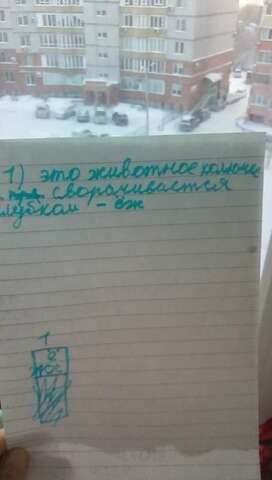 1) это животное колючее
сворачивается
лубком - ёж
1
ё
ж